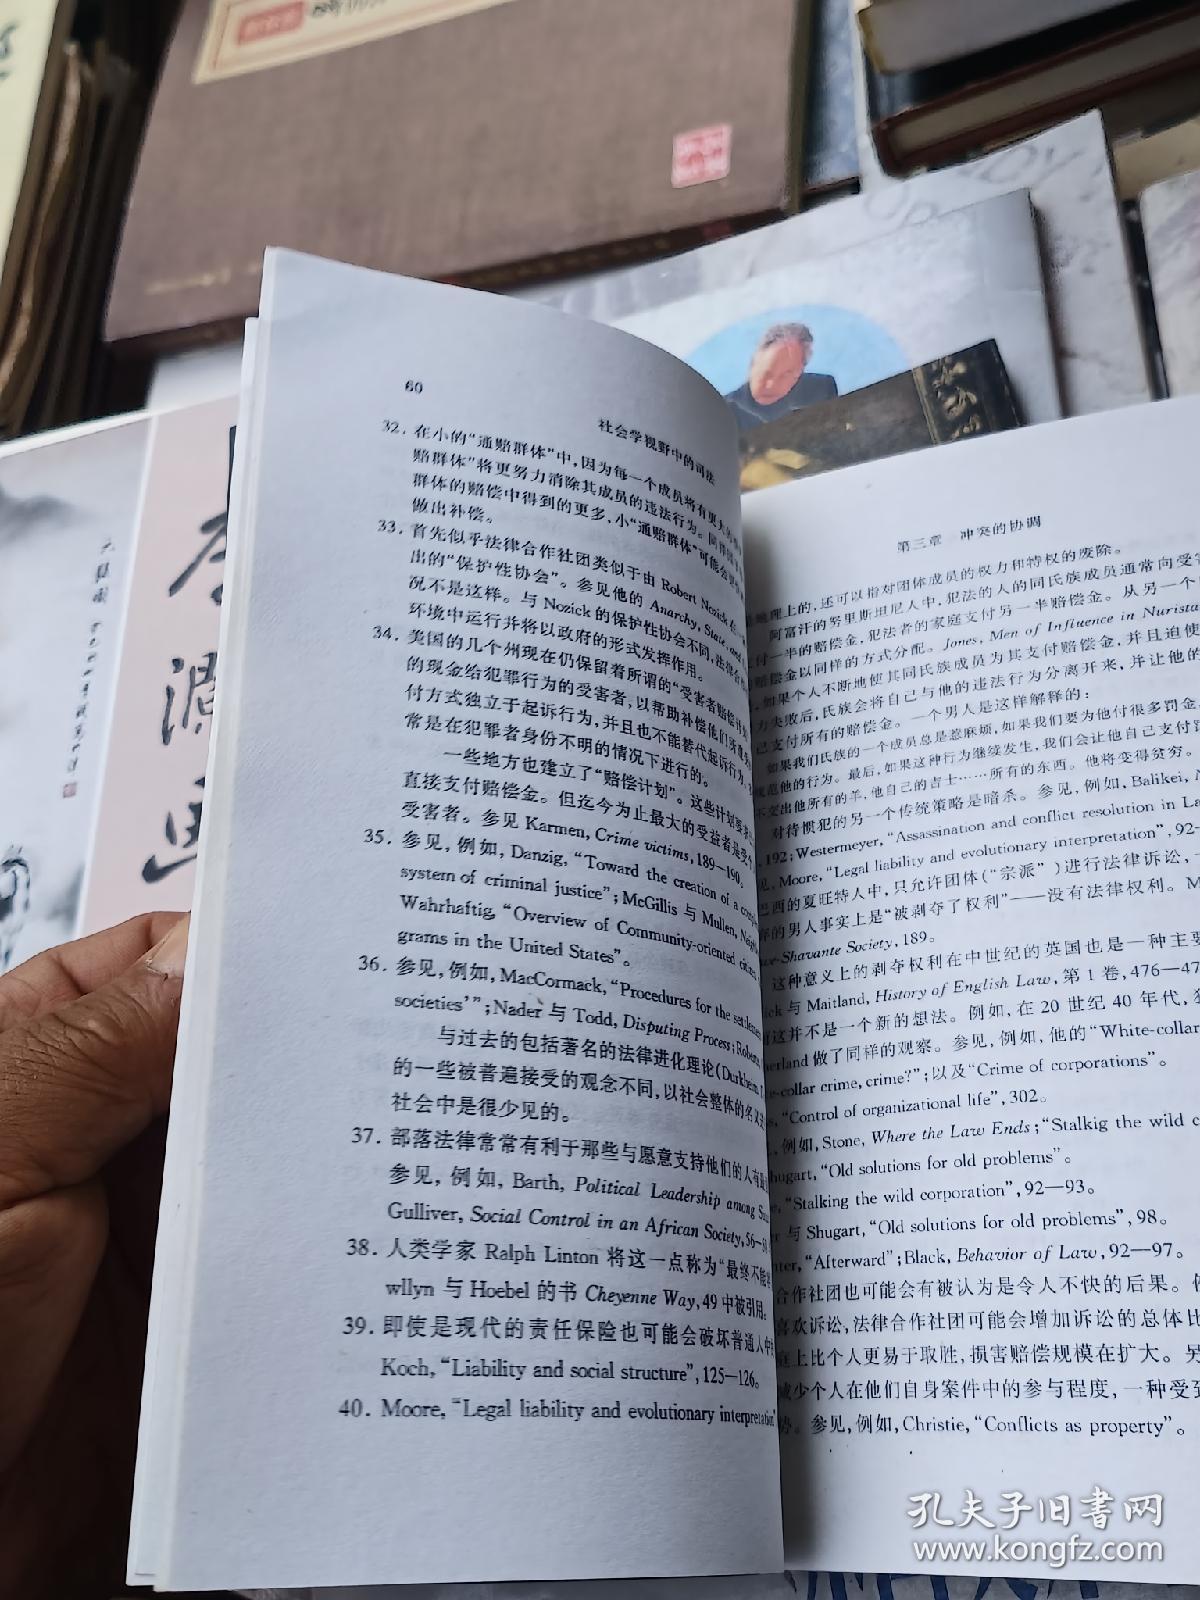 60
社会学视野中的司法
32. 在小的“通赔群体”中,因为每一个成员将有更大的
赔群体”将更努力消除其成员的违法行为。同样
群体的赔偿中得到的更多,小“通赔群体”可能会更
做出补偿。
33. 首先似乎法律合作社团类似于由 Robert Nozick 在
出的“保护性协会”。参见他的 Anarchy, State, and
况不是这样。与Nozick的保护性协会不同,法律合
环境中运行并将以政府的形式发挥作用。
34. 美国的几个州现在仍保留着所谓的“受害者赔偿计划
的现金给犯罪行为的受害者,以帮助补偿他们所遭
付方式独立于起诉行为,并且也不能替代起诉行为。
常是在犯罪者身份不明的情况下进行的。
一些地方也建立了“赔偿计划”。这些计划要求
直接支付赔偿金。但迄今为止最大的受益者是受
受害者。参见 Karmen, Crime victims, 189—190。
35. 参见,例如, Danzig, “Toward the creation of a
system of criminal justice”; McGillis 与 Mullen,
Wahrhaftig, “Overview of Community-oriented
grams in the United States”。
36. 参见,例如, MacCormack, “Procedures for the
societies’”; Nader 与 Todd, Disputing Process;
与过去的包括著名的法律进化理论(Durkheim,
的一些被普遍接受的观念不同,以社会整体的名义
社会中是很少见的。
37. 部落法律常常有利于那些与愿意支持他们的人有
参见,例如, Barth, Political Leadership among
Gulliver, Social Control in an African Society, 56—
38. 人类学家 Ralph Linton 将这一点称为“最终不能
wllyn 与 Hoebel 的书 Cheyenne Way, 49 中被引用。
39. 即使是现代的责任保险也可能会破坏普通人中
Koch, “Liability and social structure”, 125—126。
40. Moore, “Legal liability and evolutionary interpretation”
第三章 冲突的协调
地理上的,还可以指对团体成员的权力和特权的废除。
阿富汗的努里斯坦尼人中,犯法的人的同氏族成员通常向受害
付一半的赔偿金,犯法者的家庭支付另一半赔偿金。从另一个
赔偿金以同样的方式分配。Jones, Men of Influence in Nurista
,如果个人不断地使其同氏族成员为其支付赔偿金,并且迫使
力失败后,氏族会将自己与他的违法行为分离开来,并让他的
己支付所有的赔偿金。一个男人是这样解释的:
如果我们氏族的一个成员总是惹麻烦,如果我们要为他付很多罚金,
规范他的行为。最后,如果这种行为继续发生,我们会让他自己支付
不交出他所有的羊,他自己的吉士……所有的东西。他将变得贫穷。
对待惯犯的另一个传统策略是暗杀。参见,例如, Balikci,
, 192; Westermeyer, “Assassination and conflict resolution in La
见, Moore, “Legal liability and evolutionary interpretation”, 92—
巴西的夏旺特人中,只允许团体(“宗派”)进行法律诉讼,一
弃的男人事实上是“被剥夺了权利”——没有法律权利。M
we-Shavante Society, 189。
这种意义上的剥夺权利在中世纪的英国也是一种主要
ck 与 Maitland, History of English Law, 第 1 卷, 476—47
可这并不是一个新的想法。例如,在 20 世纪 40 年代,
erland 做了同样的观察。参见,例如,他的“White-collar
e-collar crime, crime?”; 以及“Crime of corporations”。
“Control of organizational life”, 302。
,例如, Stone, Where the Law Ends; “Stalkig the wild c
hugart, “Old solutions for old problems”。
“Stalking the wild corporation”, 92—93。
与 Shugart, “Old solutions for old problems”, 98。
nter, “Afterward”; Black, Behavior of Law, 92—97。
合作社团也可能会有被认为是令人不快的后果。
喜欢诉讼,法律合作社团可能会增加诉讼的总体比
在上比个人更易于取胜,损害赔偿规模在扩大。另
减少个人在他们自身案件中的参与程度,一种受到
势。参见,例如, Christie, “Conflicts as property”。
孔夫子旧书网
www.kongfz.com